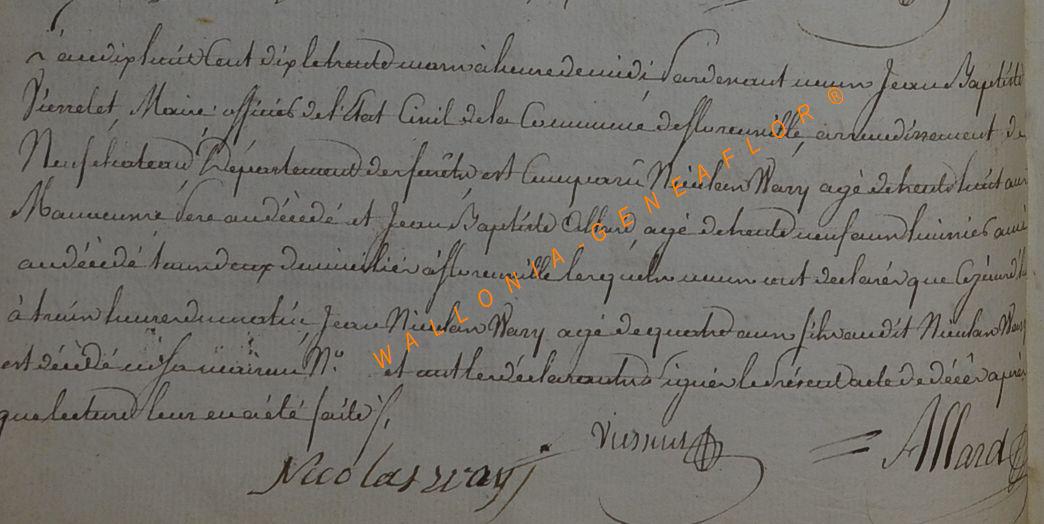 L'an dix huit cent dix le trente mars à heure de midi, Pardevant nous Jean Baptiste
Pierrelet, Maire officier de l'Etat Civil de la Commune de florenville, arrondissement de
Neufchateau Département des forêts est Comparu Nicolas Wary agé de trente huit ans
Manoeuvre Pere au décédé et Jean Baptiste Allard agé de trente neuf ans huissier ami
au décédé tous deux domiciliés à florenville lesquels nous ont declarés que Cejourd'hui
à trois heures du matin Jean Nicolas Wary agé de quatre ans fils audit Nicolas Wary
est décédé en sa maison N° et ont les déclarants Signés le Présent acte de décès après
que lecture leur en a été faite /.
Nicolas wary
Allard
WALLONIA-GENEAFLOR ®